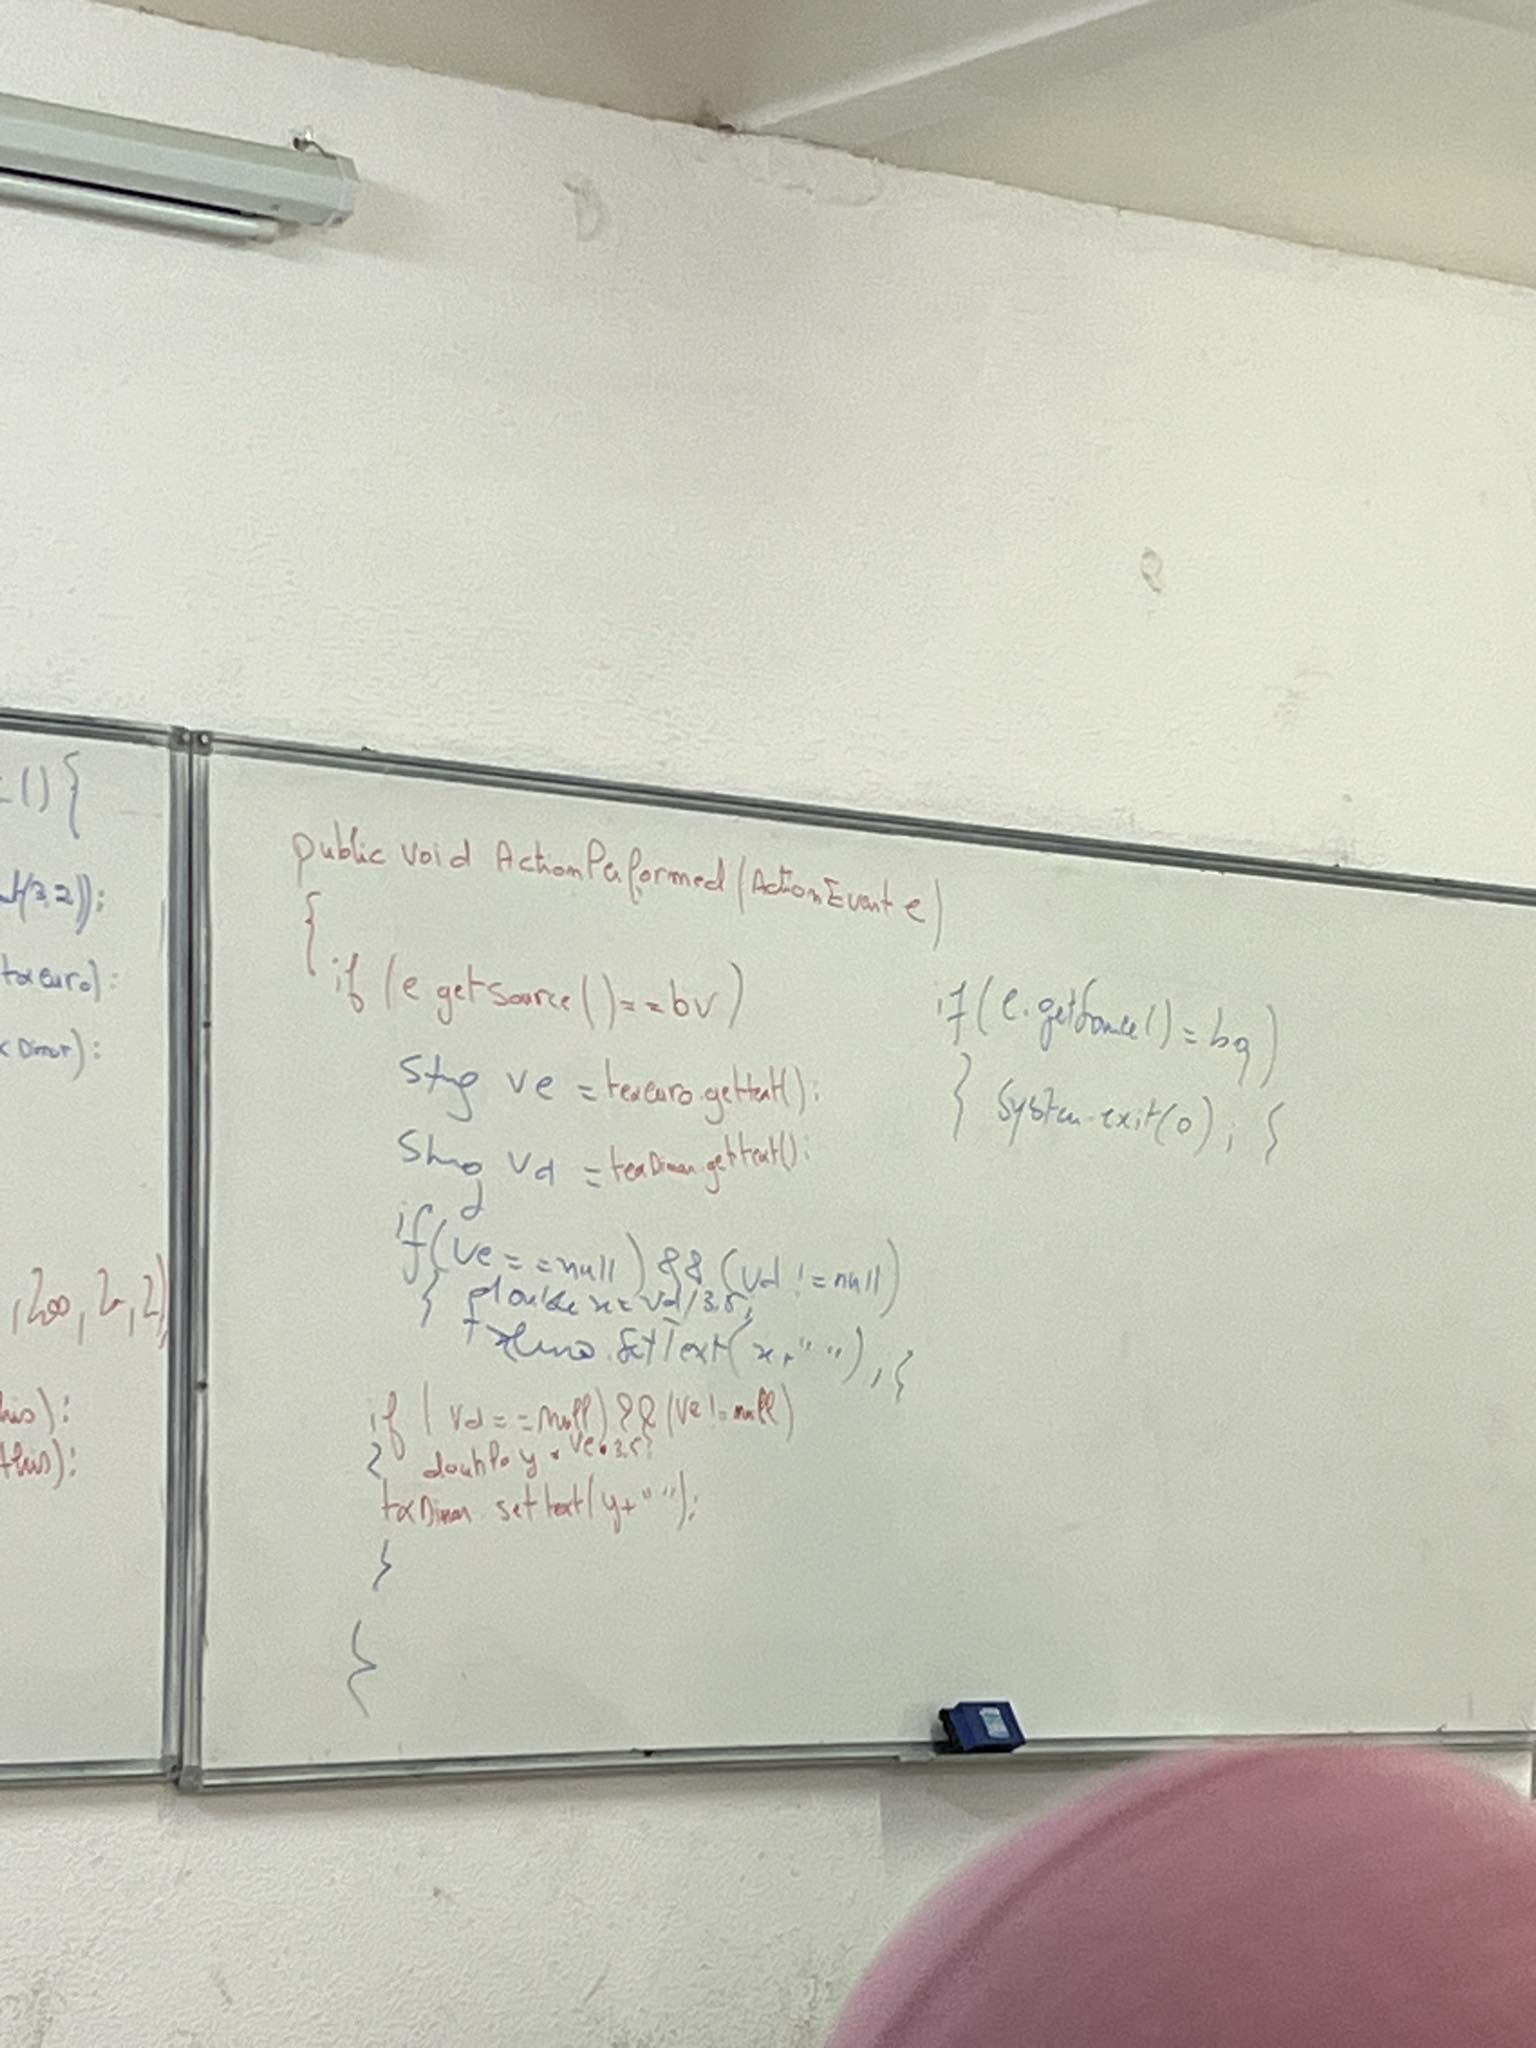 _ () {
(3,2));
txeuro);
x Dinar);
, 200, 2, 2),
his);
this);
public void ActionPerformed(ActionEvent e)
{
if (e getSource() == bv)
String ve = texeuro.gettext();
String vd = texDinar.gettext();
if
if(ve == null) && (vd != null)
{ double x = vd/3.5;
txEuro.SetText(x+" "); }
if (vd == null) && (ve != null)
{ double y = ve * 3.5;
txDinar. settext(y+" ");
}
}
if(e.getSource() = bq)
} System.exit(0); {